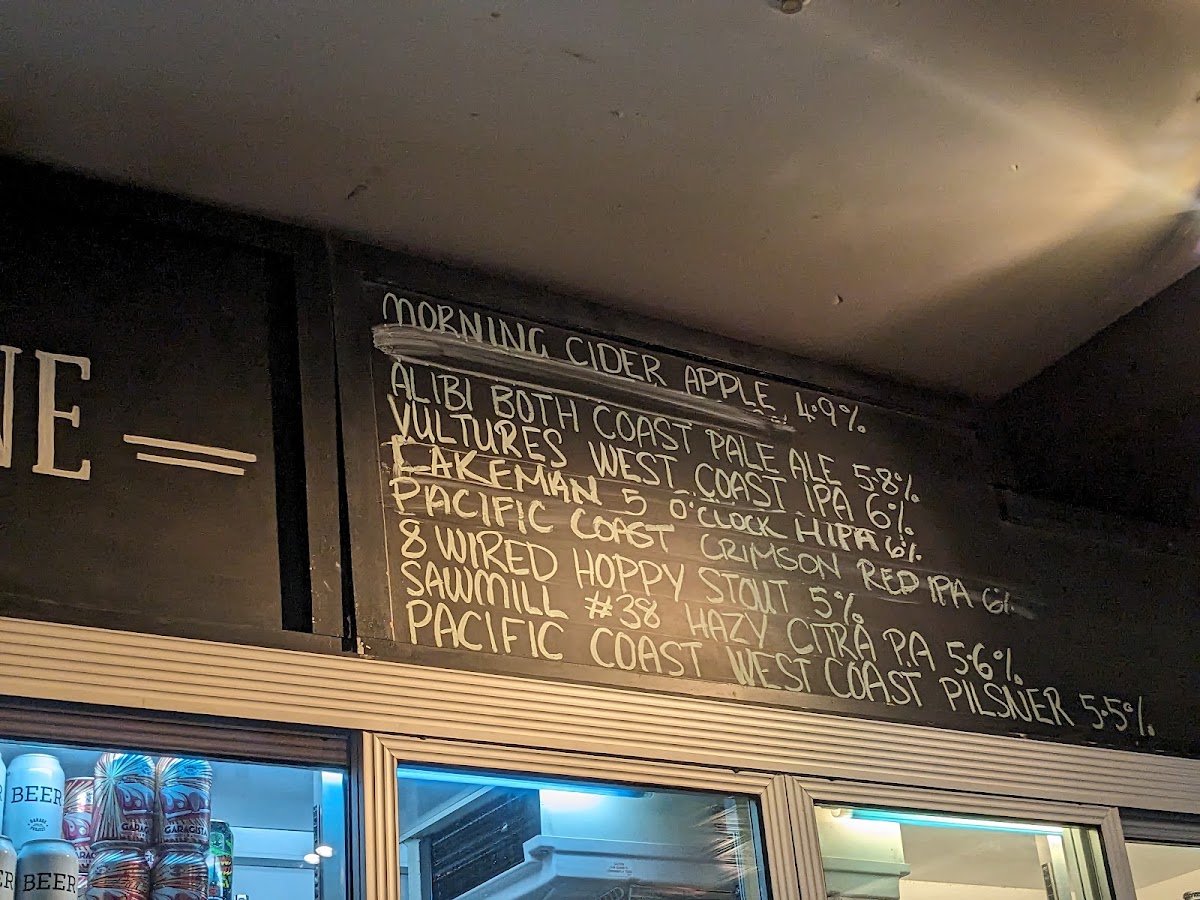 NE
MORNING CIDER APPLE 4.9%
ALIBI BOTH COAST PALE ALE 5.8%
VULTURES WEST COAST IPA 6%
LAKEMAN 5 O'CLOCK HIPA 6%
PACIFIC COAST CRIMSON RED IPA 6%
8 WIRED HOPPY STOUT 5%
SAWMILL #38 HAZY CITRA P.A 5.6%
PACIFIC COAST WEST COAST PILSNER 5.5%
BEER
GARAGISTA
BEER